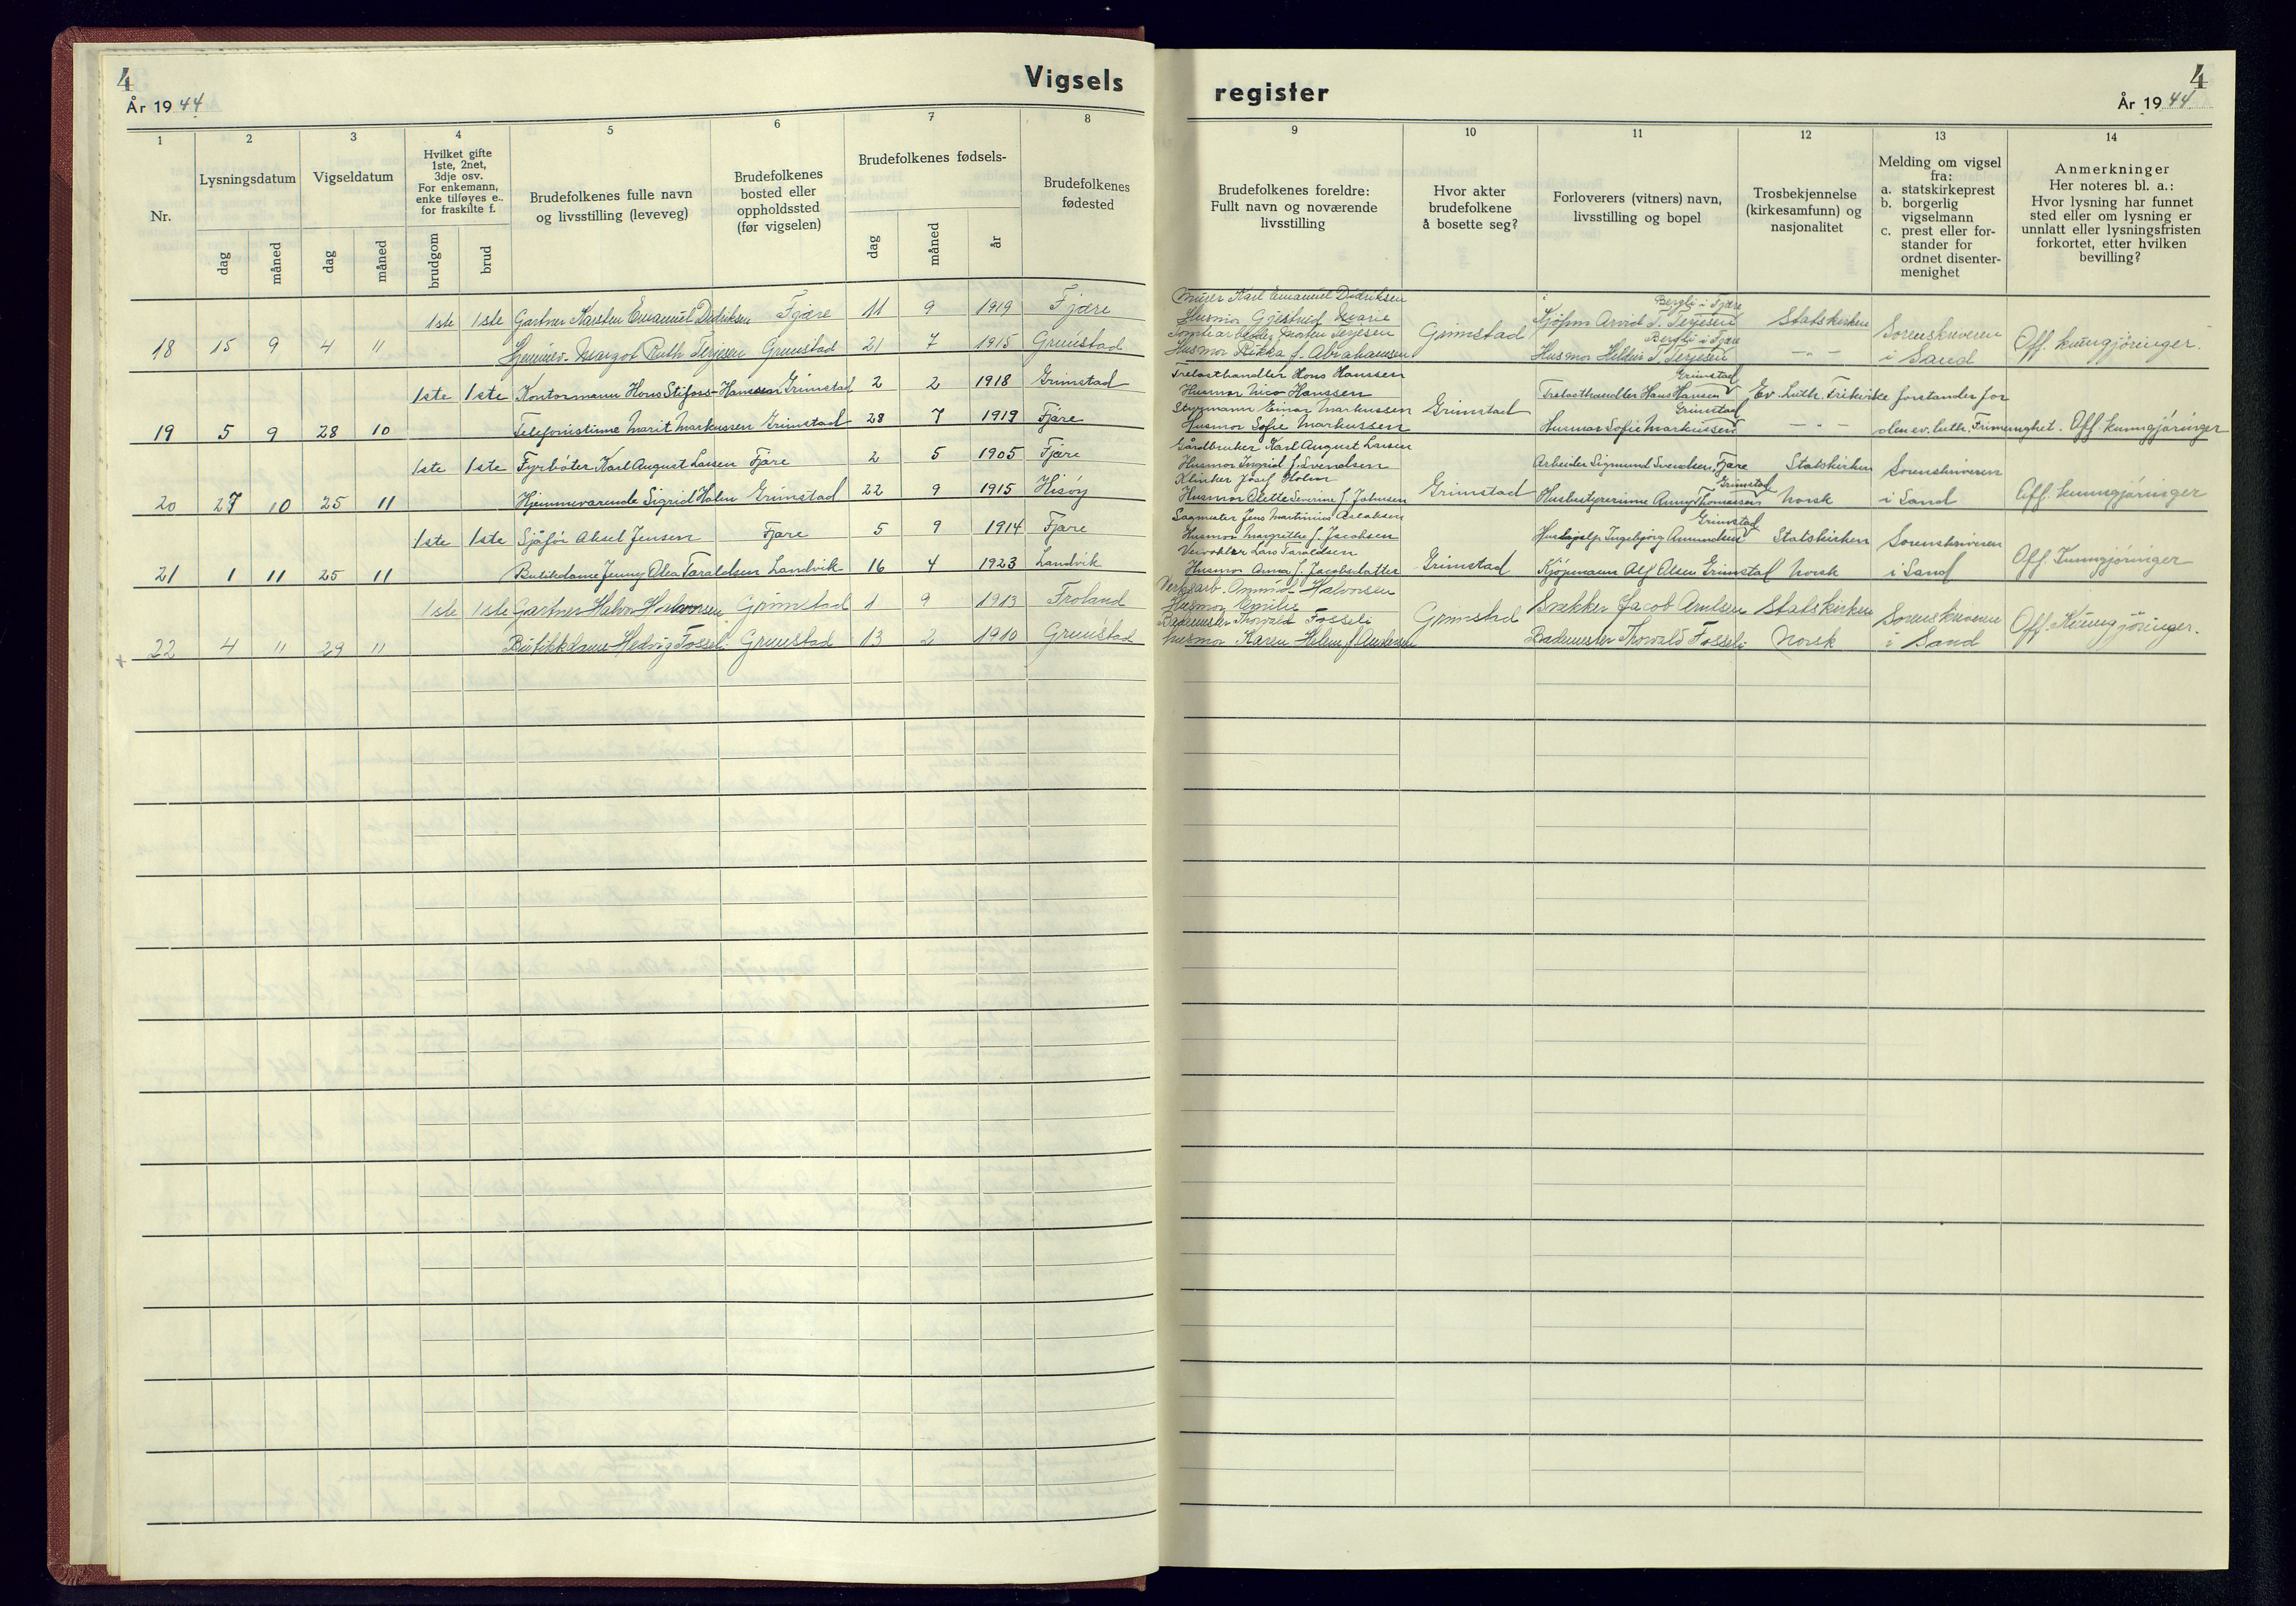 4
Vigsels
År 1944
1 2 3 4 5 6 7 8
Nr.
Lysningsdatum
Vigseldatum
Hvilket gifte
1ste, 2net,
3dje osv.
For enkemann,
enke tilføyes e..
for fraskilte f.
Brudefolkenes fulle navn
og livsstilling (leveveg)
Brudefolkenes
bosted eller
oppholdssted
(før vigselen)
Brudefolkenes fødsels-
Brudefolkenes
fødested
dag måned dag måned brudgom brud dag måned år
1ste 1ste Gartner Karsten Emanuel Didriksen Fjære 11 9 1919 Fjære
18 15 9 4 11 Margot Ruth Terjesen Grimstad 21 7 1915 Grimstad
1ste 1ste Kontormann Hans Stifoss-Hanssen Grimstad 2 2 1918 Grimstad
19 5 9 28 10 Telefonistinne Marit Markussen Grimstad 28 7 1919 Fjære
1ste 1ste Fyrbøter Karl August Larsen Fjære 2 5 1905 Fjære
20 27 10 25 11 Hjemmeværende Sigrid Holm Grimstad 22 9 1915 Hisøy
1ste 1ste Sjåfør Aksel Jensen Fjære 5 9 1914 Fjære
21 1 11 25 11 Butikdame Jenny Olea Taraldsen Landvik 16 4 1923 Landvik
1ste 1ste Gartner Halvor Halvorsen Grimstad 1 9 1913 Froland
22 4 11 29 11 Butikkdame Hedvig Fosseli Grimstad 13 2 1910 Grimstad
4
register
År 1944
9 10 11 12 13 14
Brudefolkenes foreldre:
Fullt navn og noværende
livsstilling
Hvor akter
brudefolkene
å bosette seg?
Forloverers (vitners) navn,
livsstilling og bopel
Trosbekjennelse
(kirkesamfunn) og
nasjonalitet
Melding om vigsel
fra:
a. statskirkeprest
b. borgerlig
vigselmann
c. prest eller for-
stander for
ordnet disenter-
menighet
Anmerkninger
Her noteres bl. a.:
Hvor lysning har funnet
sted eller om lysning er
unnlatt eller lysningsfristen
forkortet, etter hvilken
bevilling?
Murer Karl Emanuel Didriksen
Husmor Gjestrud Marie
Tomtearbeider Morten Terjesen
Husmor Rikka f. Abrahamsen
Grimstad
Bergli i Fjære
Kjøpm Arvid T. Terjesen
Bergli i Fjære
Husmor Hildur T. Terjesen
Statskirken
- " -
Sorenskriveren
i Sand
Off. kunngjøringer.
Trelasthandler Hans Hanssen
Husmor Nico Hanssen
Styrmann Einar Markussen
Husmor Sofie Markussen
Grimstad
Grimstad
Trelasthandler Hans Hanssen
Grimstad
Husmor Sofie Markussen
Ev. Luth. Frikirke
- " -
forstander for
den ev. luth. Frimenighet.
Off. kunngjøringer
Gårdbruker Karl August Larsen
Husmor Ingrid f. Svendsen
Klinker Josef Holm
Husmor Olette Severine f. Johnsen
Grimstad
Arbeider Sigmund Svendsen, Fjære
Grimstad
Husbestyrerinne Anny Thomassen
Statskirken
Norsk
Sorenskriveren
i Sand
Off. kunngjøringer
Sagmester Jens Martinius
Husmor Margrethe f. Jacobsen
Lars Taraldsen
Husmor Anna f. Jacobsdatter
Grimstad
Grimstad
Hushjelp Ingebjørg Amundsen
Kjøpmann Alf Olsen Grimstad
Statskirken
Norsk
Sorenskriveren
i Sand
Off. Kunngjøringer
Verksarb. Amund Halvorsen
Husmor Emilie
Bademester Thorvald Fosseli
Husmor Karen Helene f. Andersen
Grimstad
Snekker Jacob Arntsen
Bademester Thorvald Fosseli
Statskirken
Norsk
Sorenskriveren
i Sand
Off. Kunngjøringer.